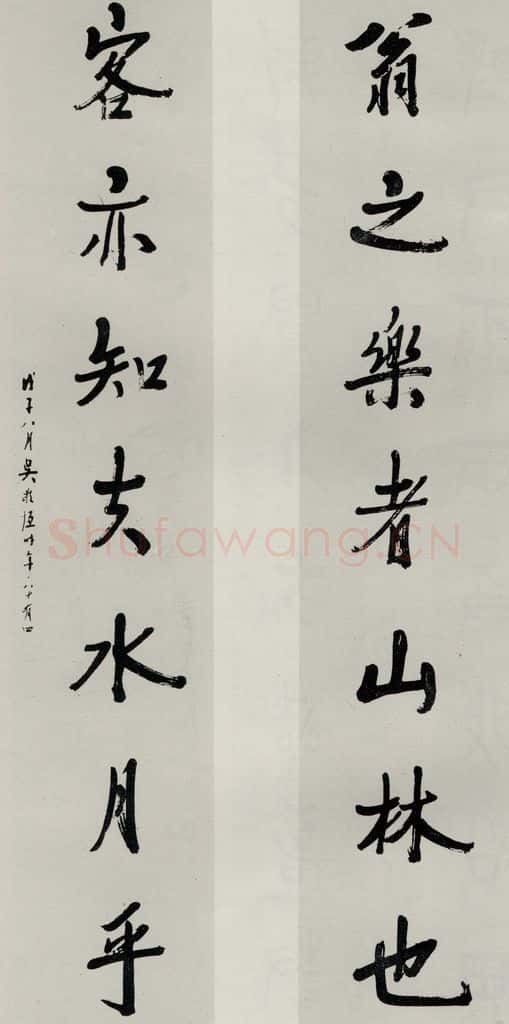 翁之樂者山林也
客亦知夫水月乎
戊子八月吳敬恆時年八十有四
Shufawang.CN